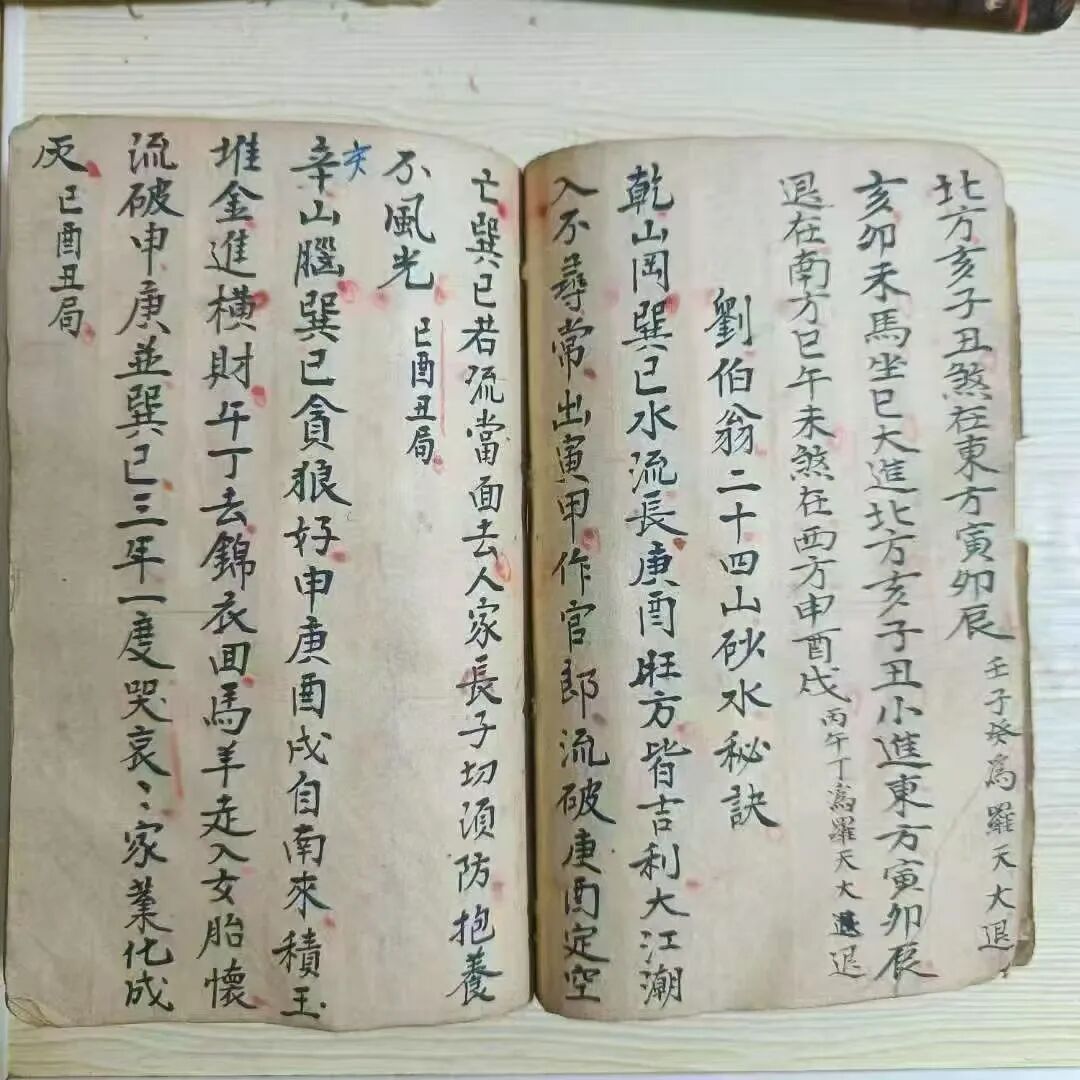 北方亥子丑煞在東方寅卯辰
壬子癸為羅天大退
亥卯未馬坐巳大進北方亥子丑小進東方寅卯辰
退在南方巳午未煞在西方申酉戌
丙午丁為羅天大退
劉伯翁二十四山砂水秘訣
乾山岡巽巳水流長庚酉旺方皆吉利大江潮
入不尋常出寅甲作官郎流破庚酉定空
亡巽巳若流當面去人家長子切須防抱養
不風光
巳酉丑局
辛亥山腦巽巳貪狼好申庚酉戌自南來積玉
堆金進横財午丁去錦衣回馬羊走入女胎懷
流破申庚並巽巳三年一度哭哀〻家業化成
灰
巳酉丑局